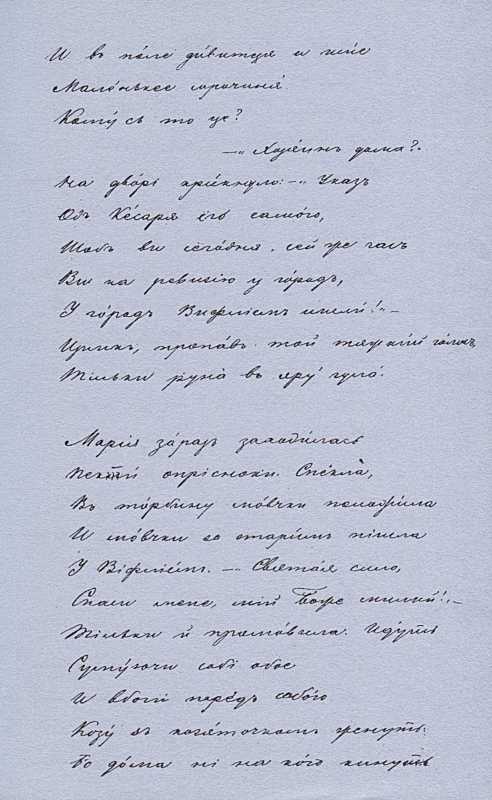 И въ по́ле ди́витця и шіе
Мале́нькее сорочиня́
Кому́съ то це?
—„Хазя́инъ дома?.
На дво́рі кри́кнуло: —„Указъ
Одъ Ке́саря его́ само́го,
Щобъ ви сего́дня, сей же часъ
Ви на ревизію у го́родъ,
У го́родъ Вифліемъ ишли!"—
И, пропа́въ той тяжкий го́лосъ,
Тільки руна́ въ яру́ гула́.
Марія за́разъ заходи́лась
Пекти́ опрісноки. Спекла́,
Въ то́рбину мо́вчки положи́ла
И мо́вчки за старимъ пішла
У Віфліе́мъ. — Святая сило,
Спаси мене, мій Боже милий!„—
Тільки й промо́вила. Иду́ть
Суму́ючи собі обое
И вбогі пере́дъ собо́ю
Козу́ зъ козя́точкомъ женуть:
Бо до́ма ні на ко́го кинуть